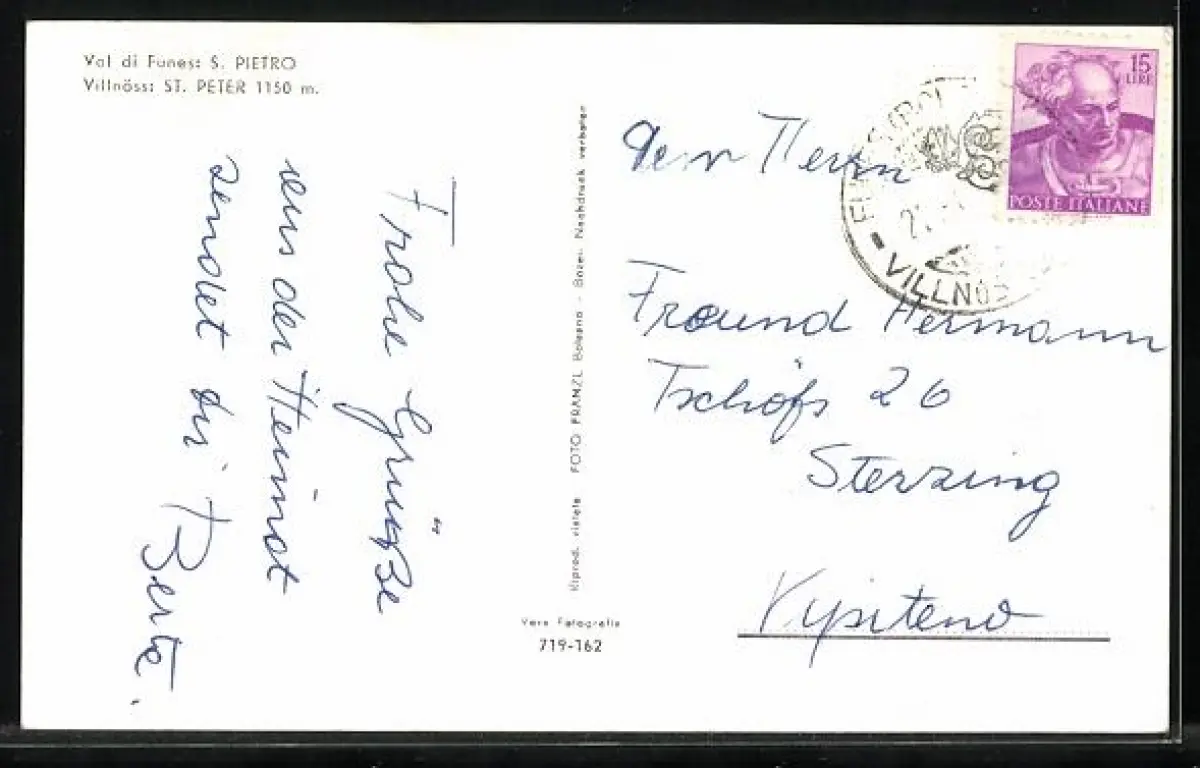 Val di Funes: S. PIETRO
Villnöss: ST. PETER 1150 m.
Frohe Grüße
aus der Heimat
sendet dir Berta.
Riprod. vietata FOTO FRANZL Bolzano - Bozen Nachdruck verboten
Vera Fotografia
719-162
15
LIRE
POSTE ITALIANE
VILLNÖS
dem Herrn
Freund Hermann
Tschöfs 26
Sterzing
Vipiteno